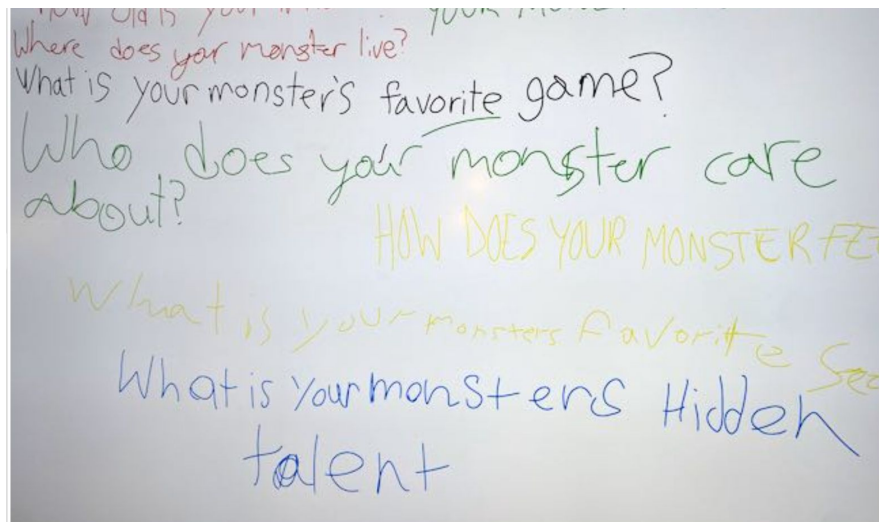 How old is your
YOUR MONST
Where does yor monster live?
What is your monster's favorite game?
Who does your monster care
about?
HOW DOES YOUR MONSTER FEE
What is your monsters favorite Sea
What is your monsters Hidden
talent